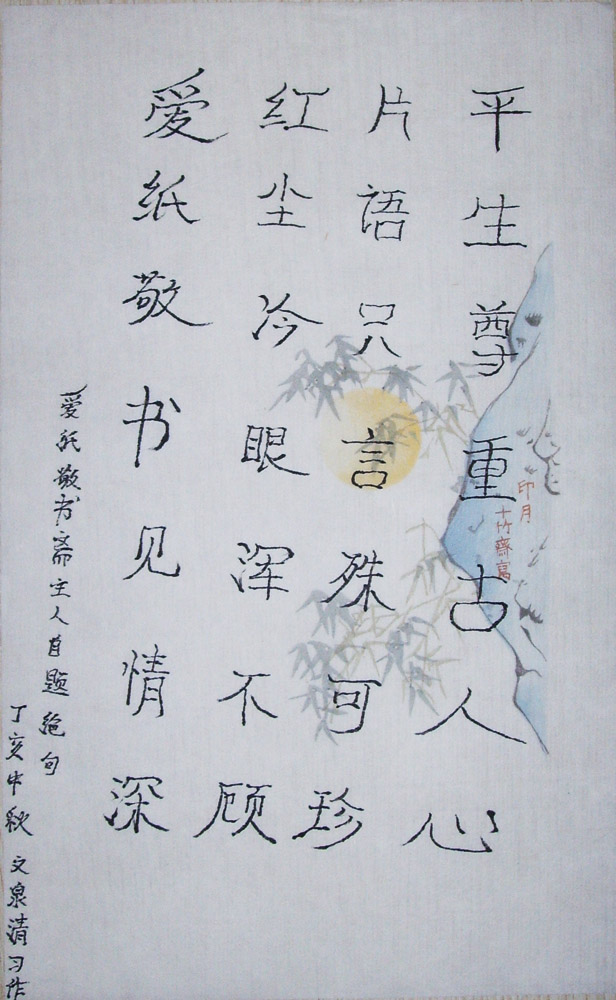 平生尊重古人心
片语只言殊可珍
红尘冷眼浑不顾
爱纸敬书见情深
爱纸敬书斋主人自题绝句
丁亥中秋文泉清习作
印月
十竹齋寫